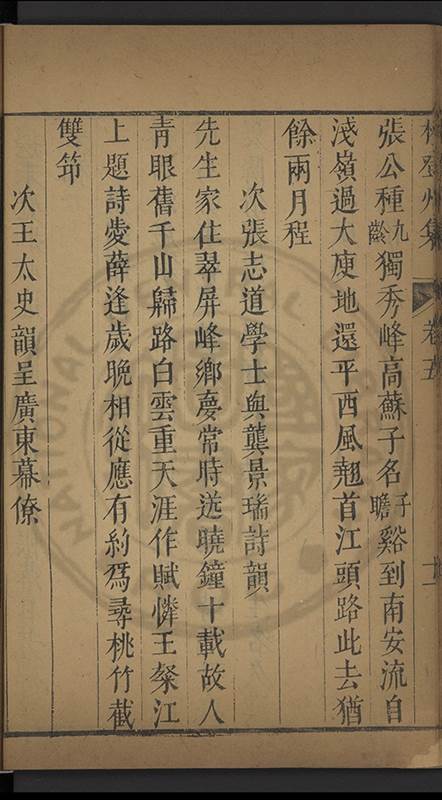 林登州集 卷五
張公種九齡獨秀峰高蘇子名子瞻谿到南安流自
淺嶺過大庾地還平西風翹首江頭路此去猶
餘兩月程
次張志道學士與龔景瑞詩韻
先生家住翠屏峰鄉夣常時送曉鐘十載故人
青眼舊千山歸路白雲重天涯作賦憐王粲江
上題詩愛薛逢歲晚相從應有約爲尋桃竹截
雙筇
次王太史韻呈廣東幕僚